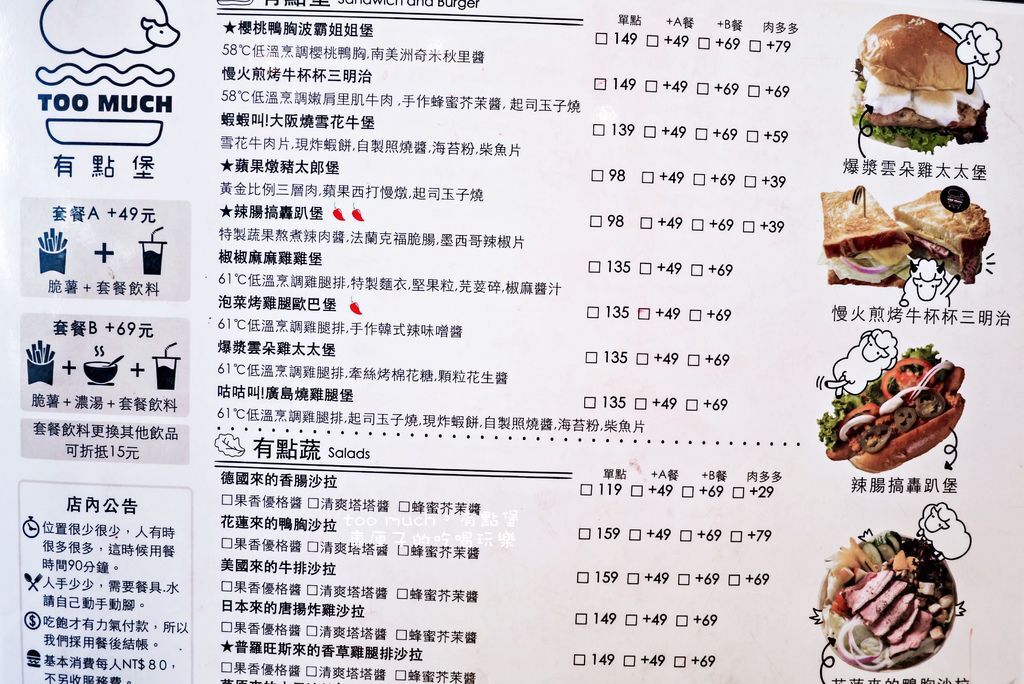 Sandwich and Burger
單點 +A餐 +B餐 肉多多
★櫻桃鴨胸波霸姐姐堡 □ 149 □ +49 □ +69 □ +79
58℃低溫烹調櫻桃鴨胸,南美洲奇米秋里醬
慢火煎烤牛杯杯三明治 □ 149 □ +49 □ +69 □ +79
58℃低溫烹調嫩肩里肌牛肉,手作蜂蜜芥茉醬,起司玉子燒
蝦蝦叫!大阪燒雪花牛堡 □ 139 □ +49 □ +69 □ +59
雪花牛肉片,現炸蝦餅,自製照燒醬,海苔粉,柴魚片
★蘋果燉豬太郎堡 □ 98 □ +49 □ +69 □ +39
黃金比例三層肉,蘋果西打慢燉,起司玉子燒
★辣腸搞轟趴堡 □ 98 □ +49 □ +69 □ +39
特製蔬果熬煮辣肉醬,法蘭克福脆腸,墨西哥辣椒片
椒椒麻麻雞雞堡 □ 135 □ +49 □ +69
61℃低溫烹調雞腿排,特製麵衣,堅果粒,芫荽碎,椒麻醬汁
泡菜烤雞腿歐巴堡 □ 135 □ +49 □ +69
61℃低溫烹調雞腿排,手作韓式辣味噌醬
爆漿雲朵雞太太堡 □ 135 □ +49 □ +69
61℃低溫烹調雞腿排,牽絲烤棉花糖,顆粒花生醬
咕咕叫!廣島燒雞腿堡 □ 135 □ +49 □ +69
61℃低溫烹調雞腿排,起司玉子燒,現炸蝦餅,自製照燒醬,海苔粉,柴魚片
有點蔬 Salads
單點 +A餐 +B餐 肉多多
德國來的香腸沙拉 □ 119 □ +49 □ +69 □ +29
□果香優格醬 □清爽塔塔醬 □蜂蜜芥茉醬
花蓮來的鴨胸沙拉 □ 159 □ +49 □ +69 □ +79
□果香優格醬 □清爽塔塔醬 □蜂蜜芥茉醬
美國來的牛排沙拉 □ 159 □ +49 □ +69 □ +69
□果香優格醬 □清爽塔塔醬 □蜂蜜芥茉醬
日本來的唐揚炸雞沙拉 □ 149 □ +49 □ +69
□果香優格醬 □清爽塔塔醬 □蜂蜜芥茉醬
★普羅旺斯來的香草雞腿排沙拉 □ 149 □ +49 □ +69
□果香優格醬 □清爽塔塔醬 □蜂蜜芥茉醬
TOO MUCH
有點堡
套餐A +49元
+
脆薯+套餐飲料
套餐B +69元
+ +
脆薯+濃湯+套餐飲料
套餐飲料更換其他飲品
可折抵15元
店內公告
位置很少很少,人有時
很多很多,這時候用餐
時間90分鐘。
人手少少,需要餐具.水
請自己動手動腳。
吃飽才有力氣付款,所以
我們採用餐後結帳。
基本消費每人NT$80,
不另收服務費。
爆漿雲朵雞太太堡
慢火煎烤牛杯杯三明治
辣腸搞轟趴堡
花蓮來的鴨胸沙拉
too much。有點堡
的吃喝玩樂